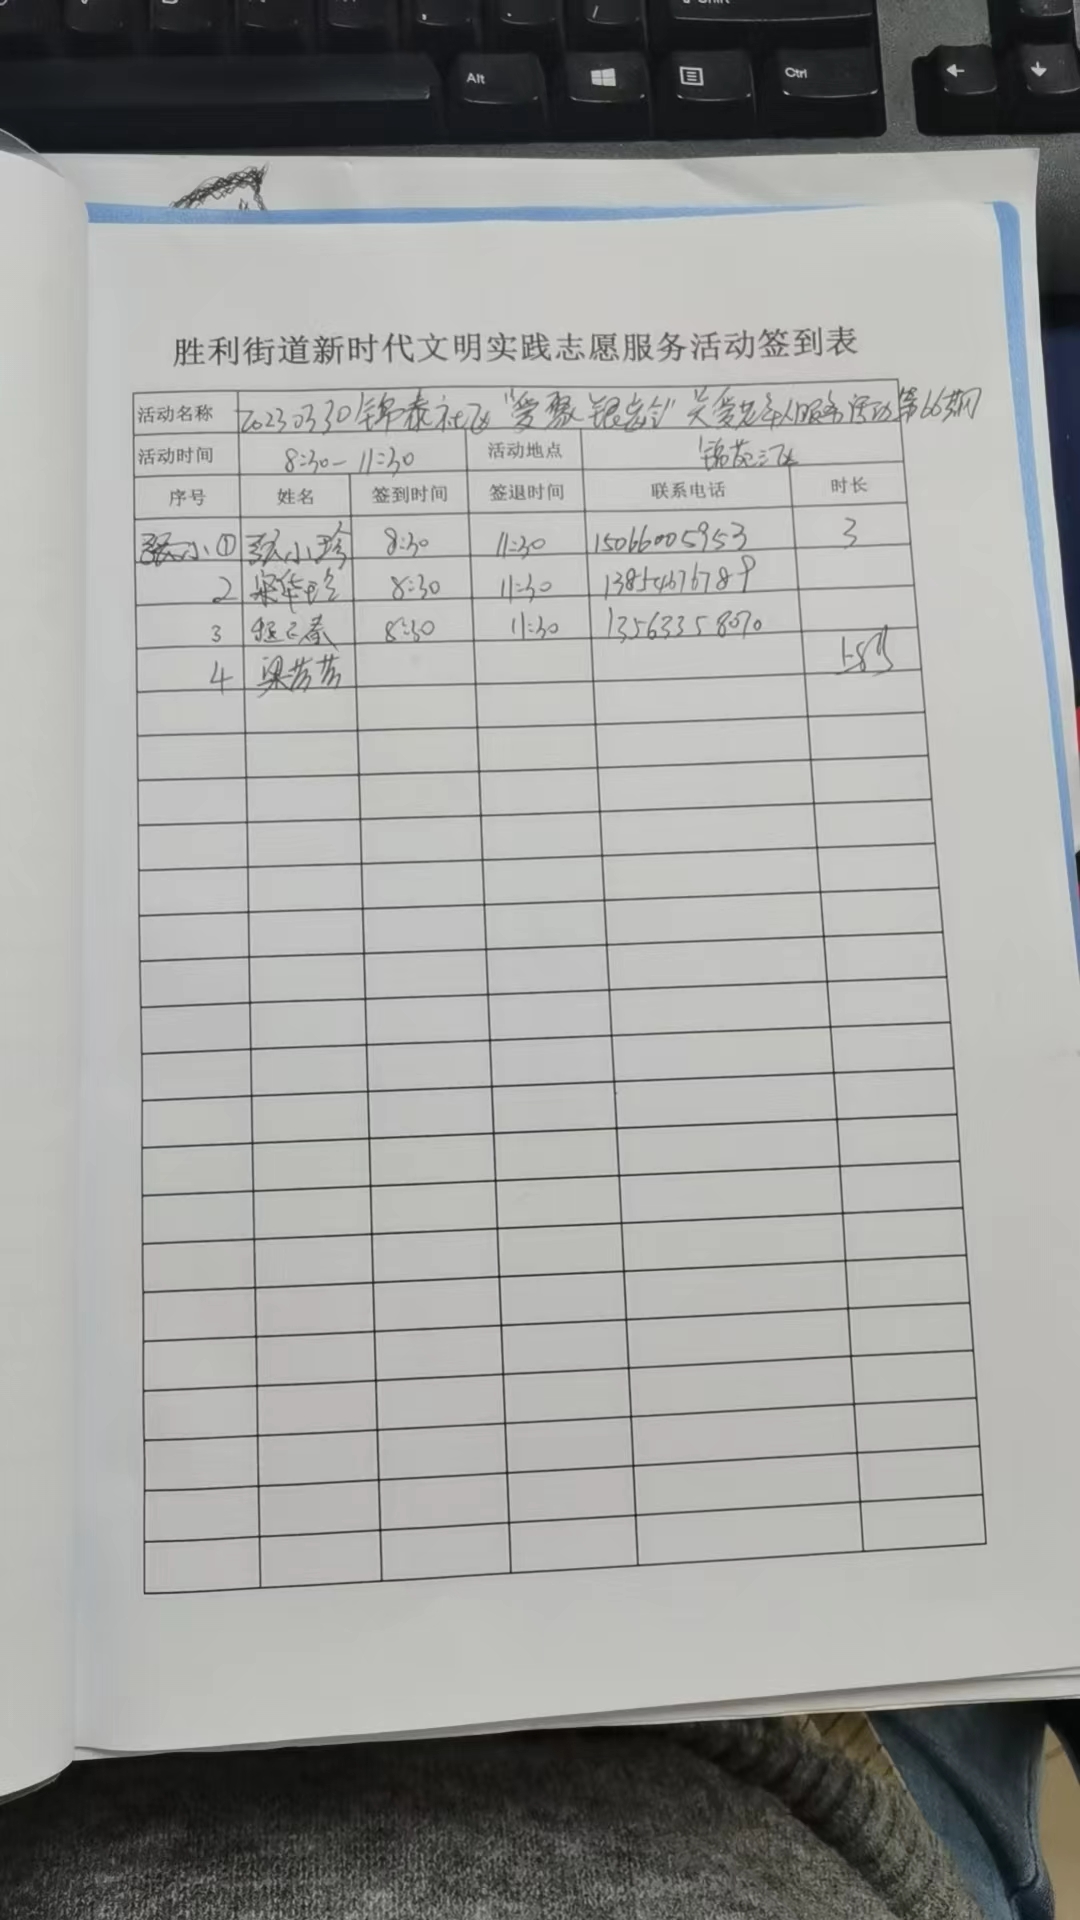 Shift
Alt
Ctrl
胜利街道新时代文明实践志愿服务活动签到表
活动名称 20230330锦泰社区"爱聚银龄"关爱老年人服务活动第66期
活动时间 8:30-11:30 活动地点 锦苑三区
序号 姓名 签到时间 签退时间 联系电话 时长
张小① 张小珍 8:30 11:30 15066005953 3
2 梁华珍 8:30 11:30 13854676789
3 程三春 8:30 11:30 13563358070
4 梁芳芳